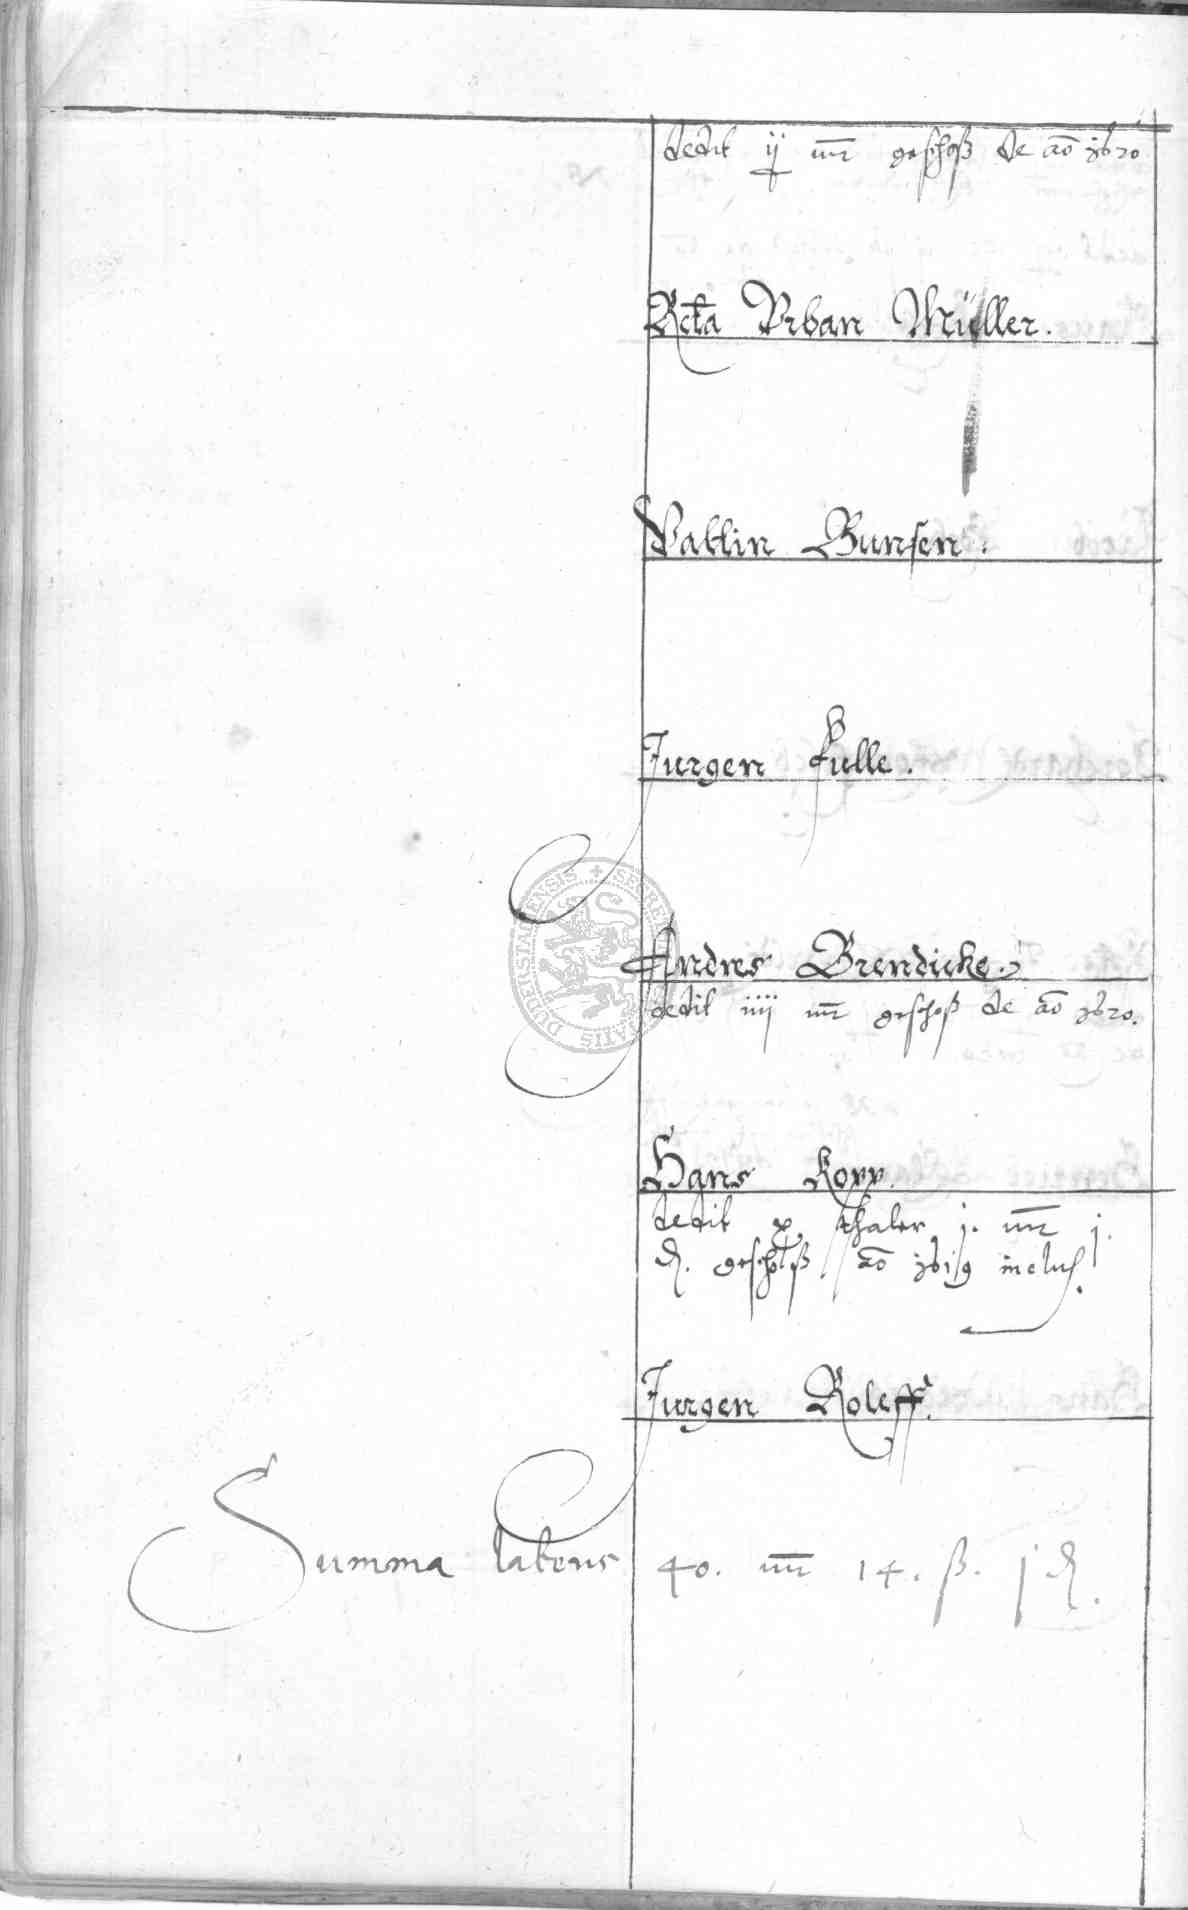 dedit ij mr geschoß de ao 1620
Rcta Vrban Müller.
Valtin Bunsen.
Jurgen Fulle.
Andres Brendicke.
dedit iiij mr geschoß de ao 1620.
Hans Kopp.
dedit x thaler j. mr j.
d. geschoß ao 1619 inclus.
Jurgen Roleff.
Summa lateris 40. mr 14. ß. j d.
SECRET DUDERSTADENSIS